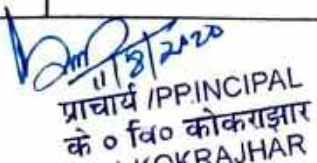 11/8/2020
प्राचार्य /PRINCIPAL
के ० वि० कोकराझार
KOKRAJHAR